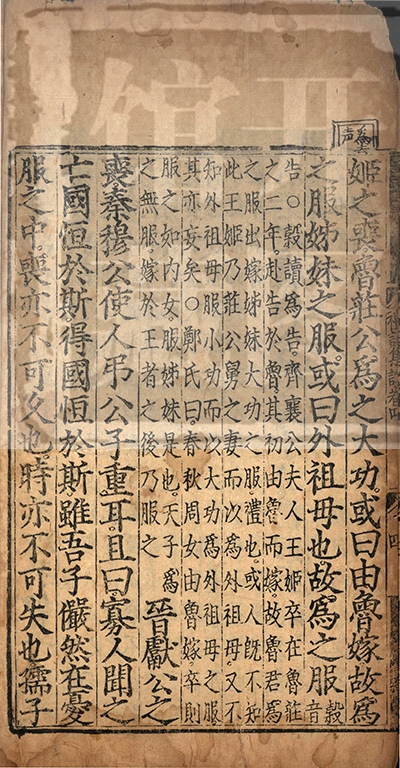 姬之喪魯莊公爲之大功或曰由魯嫁故爲
之服姊妹之服或曰外祖母也故爲之服穀音
告○穀讀爲告齊襄公夫人王姬卒在魯莊
之二年赴告於魯其初由魯而嫁故魯君爲
之服出嫁姊妹大功之服禮也或人旣不知
此王姬乃莊公舅之妻而以爲外祖母又不
知外祖母服小功而以大功爲外祖母之服
其亦妄矣○鄭氏曰春秋周女由魯嫁卒則
服之如內女服姊妹是也天子爲
之無服嫁於王者之後乃服之
晉獻公之
喪秦穆公使人弔公子重耳且曰寡人聞之
亡國恒於斯得國恒於斯雖吾子儼然在憂
服之中喪亦不可久也時亦不可失也孺子